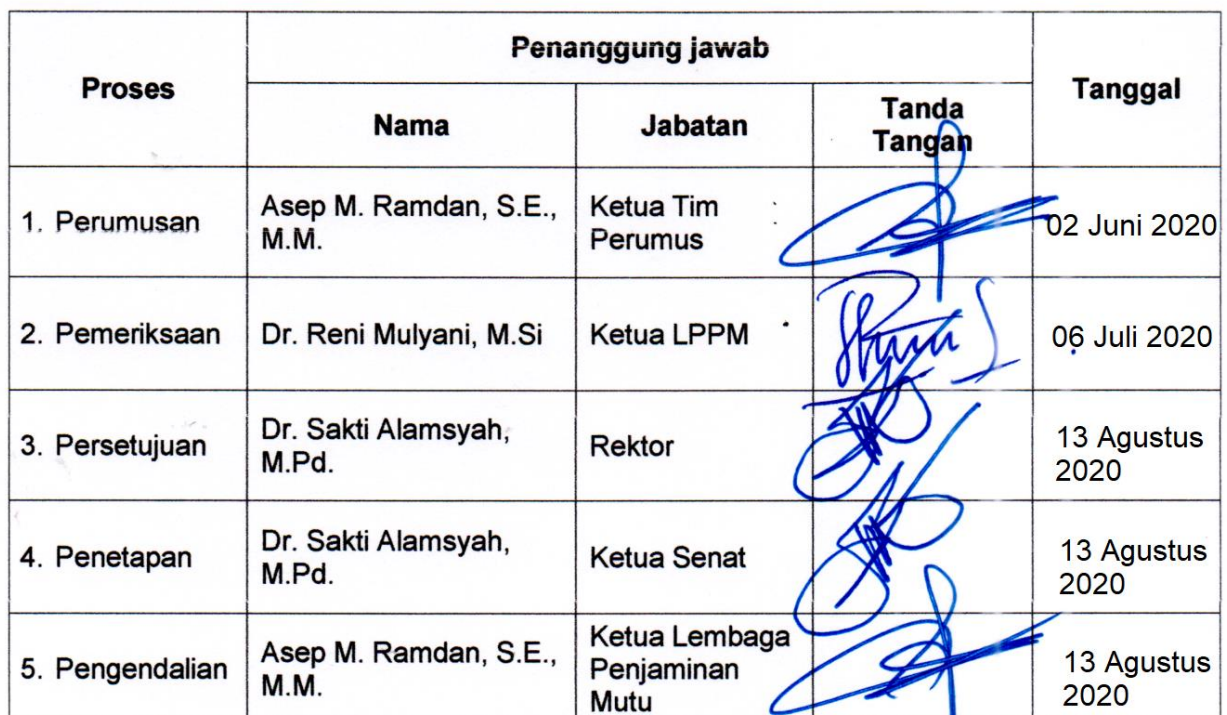 Proses
Penanggung jawab
Tanggal
Nama
Jabatan
Tanda
Tangan
1. Perumusan
Asep M. Ramdan, S.E.,
M.M.
Ketua Tim
Perumus
02 Juni 2020
2. Pemeriksaan
Dr. Reni Mulyani, M.Si
Ketua LPPM
06 Juli 2020
3. Persetujuan
Dr. Sakti Alamsyah,
M.Pd.
Rektor
13 Agustus
2020
4. Penetapan
Dr. Sakti Alamsyah,
M.Pd.
Ketua Senat
13 Agustus
2020
5. Pengendalian
Asep M. Ramdan, S.E.,
M.M.
Ketua Lembaga
Penjaminan
Mutu
13 Agustus
2020